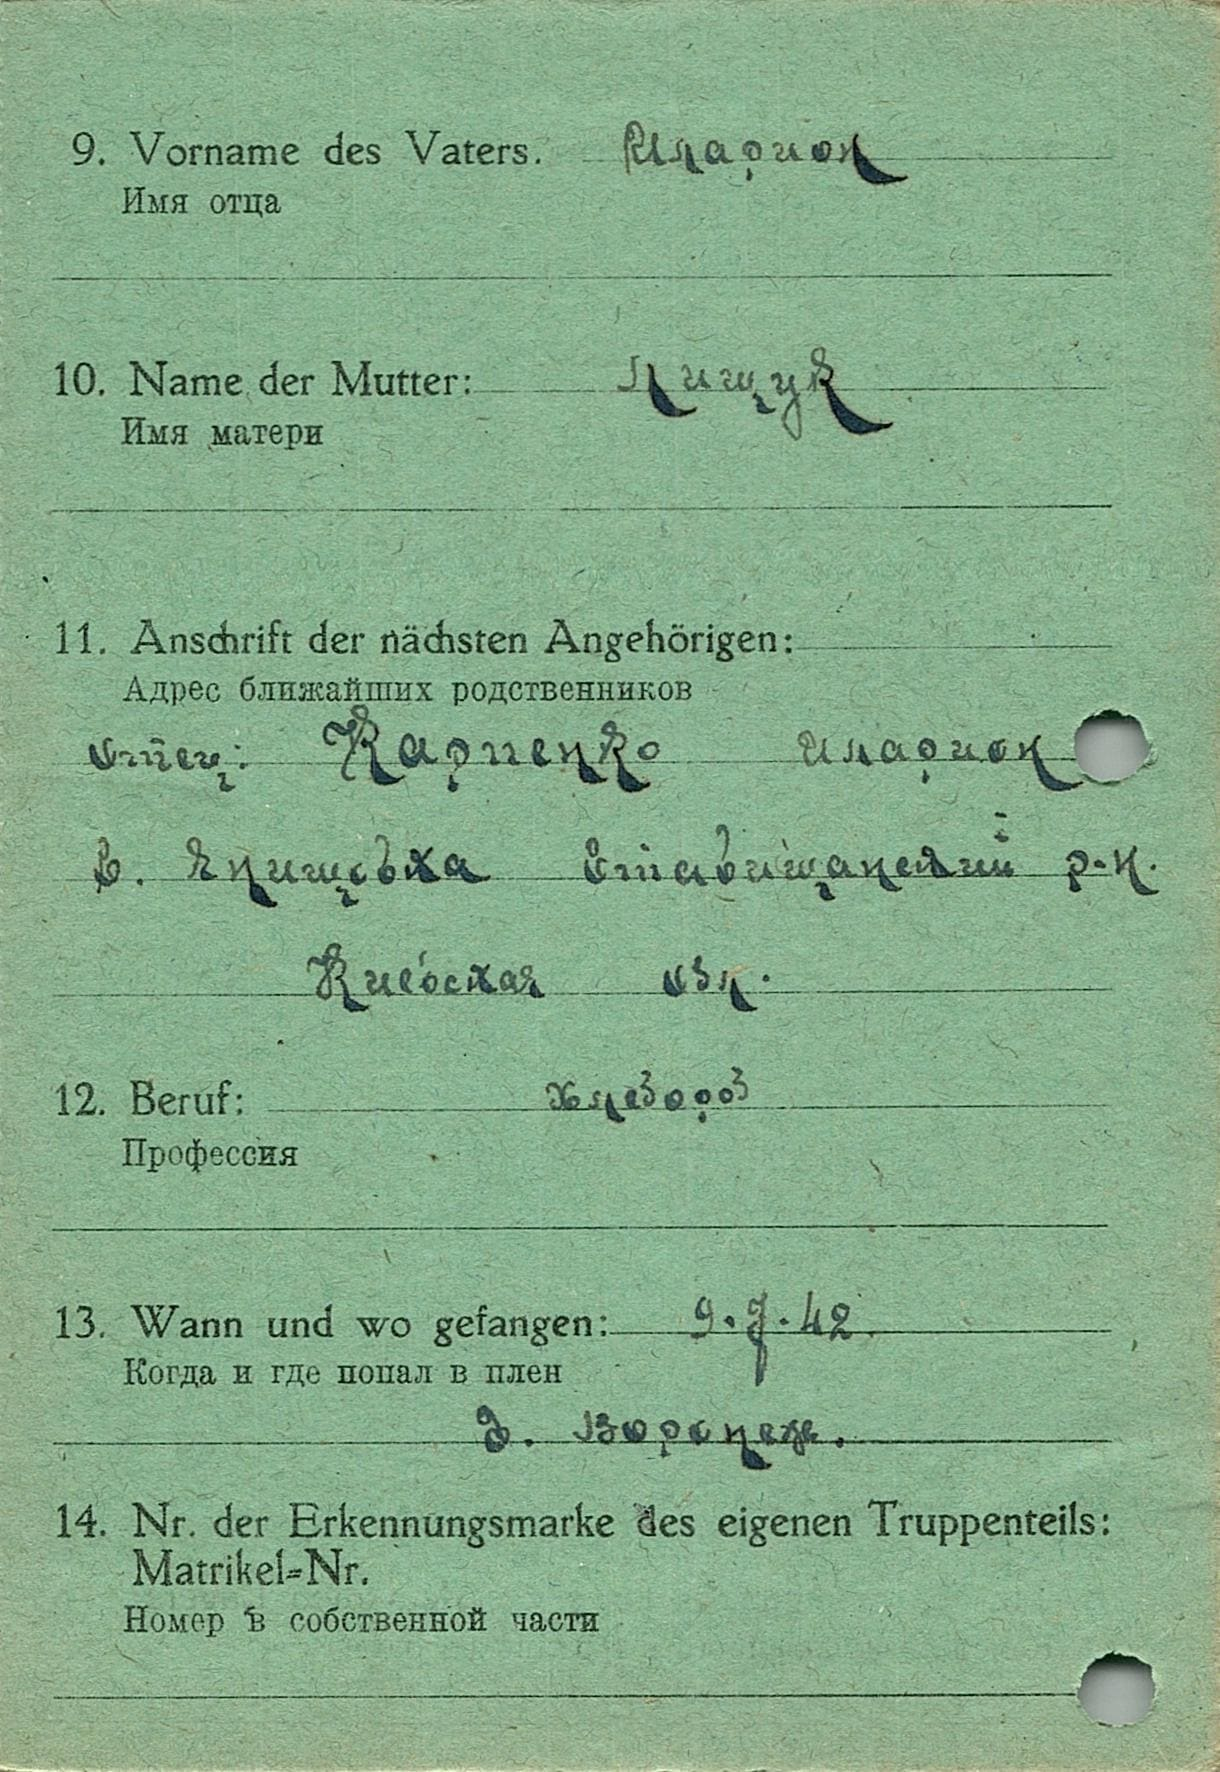 9. Vorname des Vaters. Иларион
Имя отца
10. Name der Mutter: Лищук
Имя матери
11. Anschrift der nächsten Angehörigen:
Адрес ближайших родственников
Отец: Карпенко Иларион
с. Янишовка Ставищанский р-н.
Киевская обл.
12. Beruf: хлебороб
Профессия
13. Wann und wo gefangen: 9.7.42.
Когда и где попал в плен
г. Воронеж.
14. Nr. der Erkennungsmarke des eigenen Truppenteils:
Matrikel=Nr.
Номер в собственной части